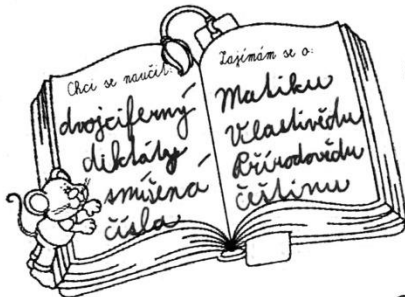 Chci se naučit:
dvojciferný
diktáty
smíšená
čísla
Zajímám se o:
Matiku
Vlastivědu
Přírodovědu
češtinu